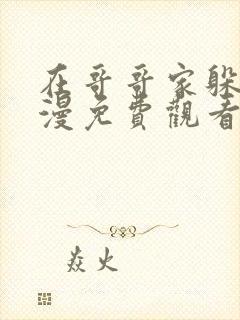 在哥哥家躲
漫免費觀看
焱火